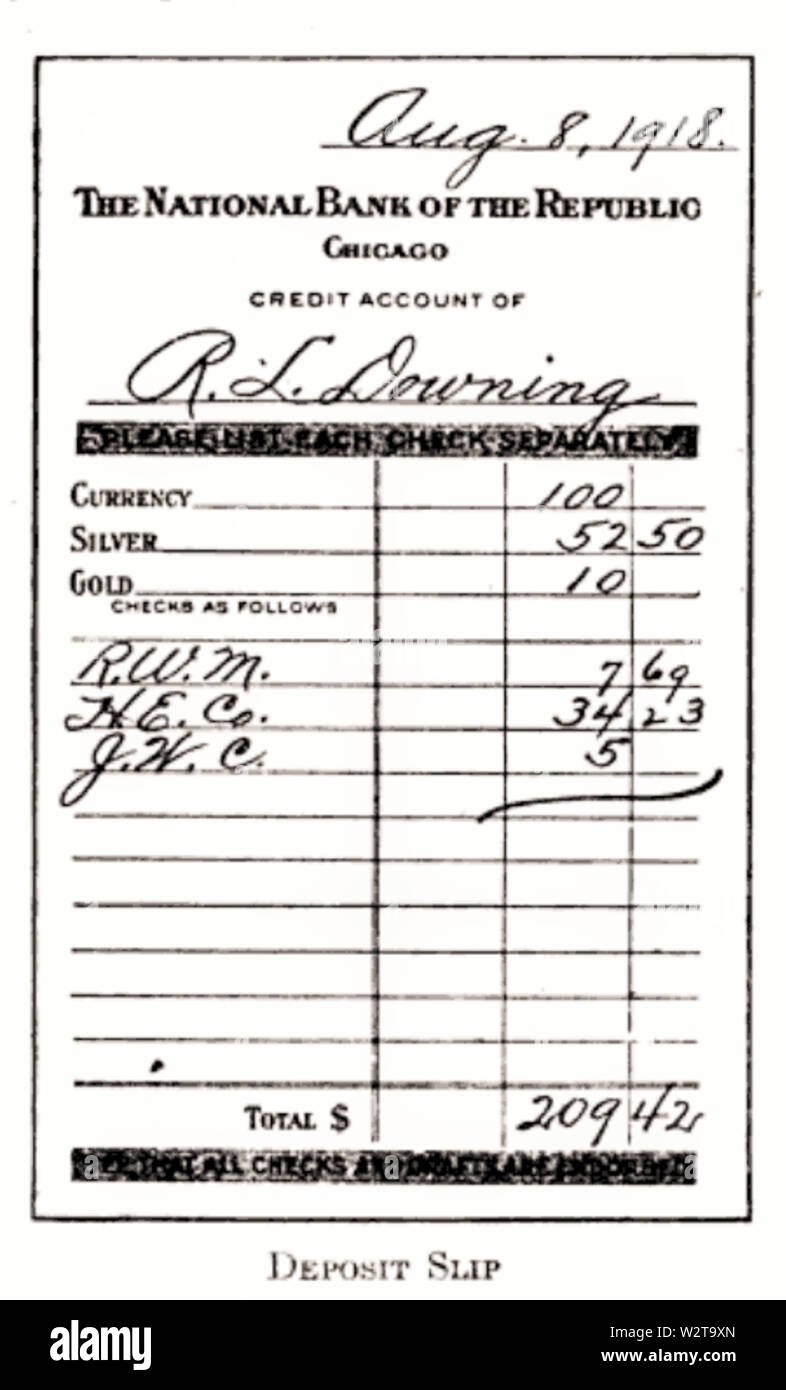 Aug. 8, 1918.
THE NATIONAL BANK OF THE REPUBLIC
CHICAGO
CREDIT ACCOUNT OF
R. L. Downing
PLEASE LIST EACH CHECK SEPARATELY
CURRENCY 100
SILVER 52 50
GOLD 10
CHECKS AS FOLLOWS
R. W. M. 7 69
H. E. Co. 34 23
J. W. C. 5
TOTAL $ 209 42
SEE THAT ALL CHECKS AND DRAFTS ARE ENDORSED
DEPOSIT SLIP
alamy
Image ID: W2T9XN
www.alamy.com